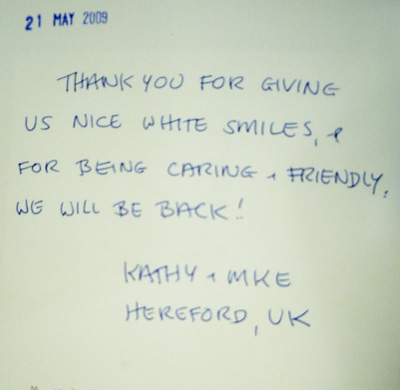 21 MAY 2009
THANK YOU FOR GIVING
US NICE WHITE SMILES, &
FOR BEING CARING & FRIENDLY.
WE WILL BE BACK!
KATHY & MKE
HEREFORD, UK